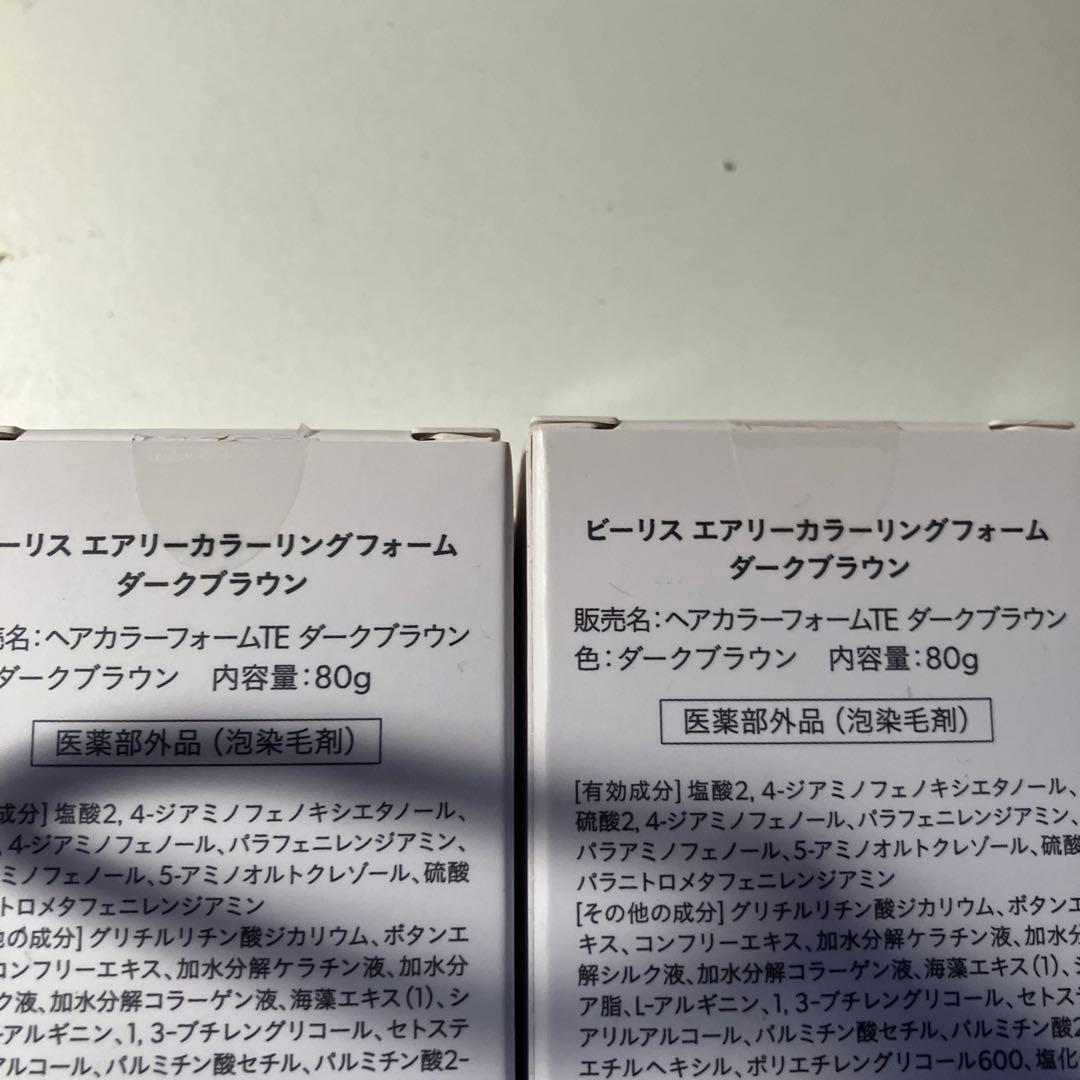 ーリス エアリーカラーリングフォーム
ダークブラウン
名：ヘアカラーフォームTE ダークブラウン
ダークブラウン　内容量：80g
医薬部外品（泡染毛剤）
成分] 塩酸2, 4-ジアミノフェノキシエタノール、
, 4-ジアミノフェノール、パラフェニレンジアミン、
ミノフェノール、5-アミノオルトクレゾール、硫酸
トロメタフェニレンジアミン
の成分] グリチルリチン酸ジカリウム、ボタンエ
コンフリーエキス、加水分解ケラチン液、加水分
ク液、加水分解コラーゲン液、海藻エキス（1）、シ
-アルギニン、1, 3-ブチレングリコール、セトステ
アルコール、パルミチン酸セチル、パルミチン酸2-
ビーリス エアリーカラーリングフォーム
ダークブラウン
販売名：ヘアカラーフォームTE ダークブラウン
色：ダークブラウン　内容量：80g
医薬部外品（泡染毛剤）
[有効成分] 塩酸2, 4-ジアミノフェノキシエタノール、
硫酸2, 4-ジアミノフェノール、パラフェニレンジアミン、
パラアミノフェノール、5-アミノオルトクレゾール、硫酸
パラニトロメタフェニレンジアミン
[その他の成分] グリチルリチン酸ジカリウム、ボタンエ
キス、コンフリーエキス、加水分解ケラチン液、加水分
解シルク液、加水分解コラーゲン液、海藻エキス（1）、シ
ア脂、L-アルギニン、1, 3-ブチレングリコール、セトステ
アリルアルコール、パルミチン酸セチル、パルミチン酸2
エチルヘキシル、ポリエチレングリコール600、塩化